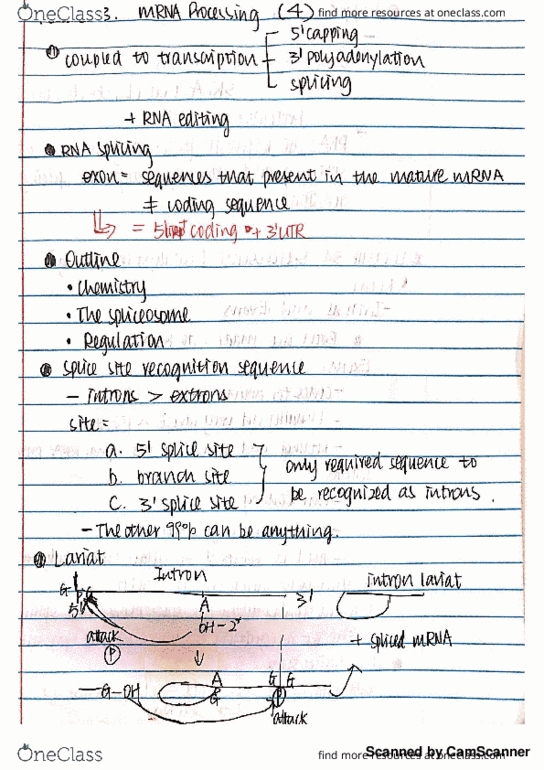 OneClass 3. mRNA Processing (4) find more resources at oneclass.com
5' capping
coupled to transcription 3' polyadenylation
splicing
+ RNA editing
RNA splicing
exon = sequences that present in the mature mRNA
≠ coding sequence
= coding + 3'UTR
Outline
• Chemistry
• The spliceosome
• Regulation
Splice site recognition sequence
- introns > extrons
site =
a. 5' splice site
b. branch site
c. 3' splice site
only required sequence to
be recognized as introns.
- The other 99% can be anything.
Lariat
Intron
intron lariat
G
5'
A
3'
OH - 2'
attack
P
+ spliced mRNA
- G-OH
A
G
G G
P
attack
Scanned by CamScanner
OneClass find more resources at oneclass.com